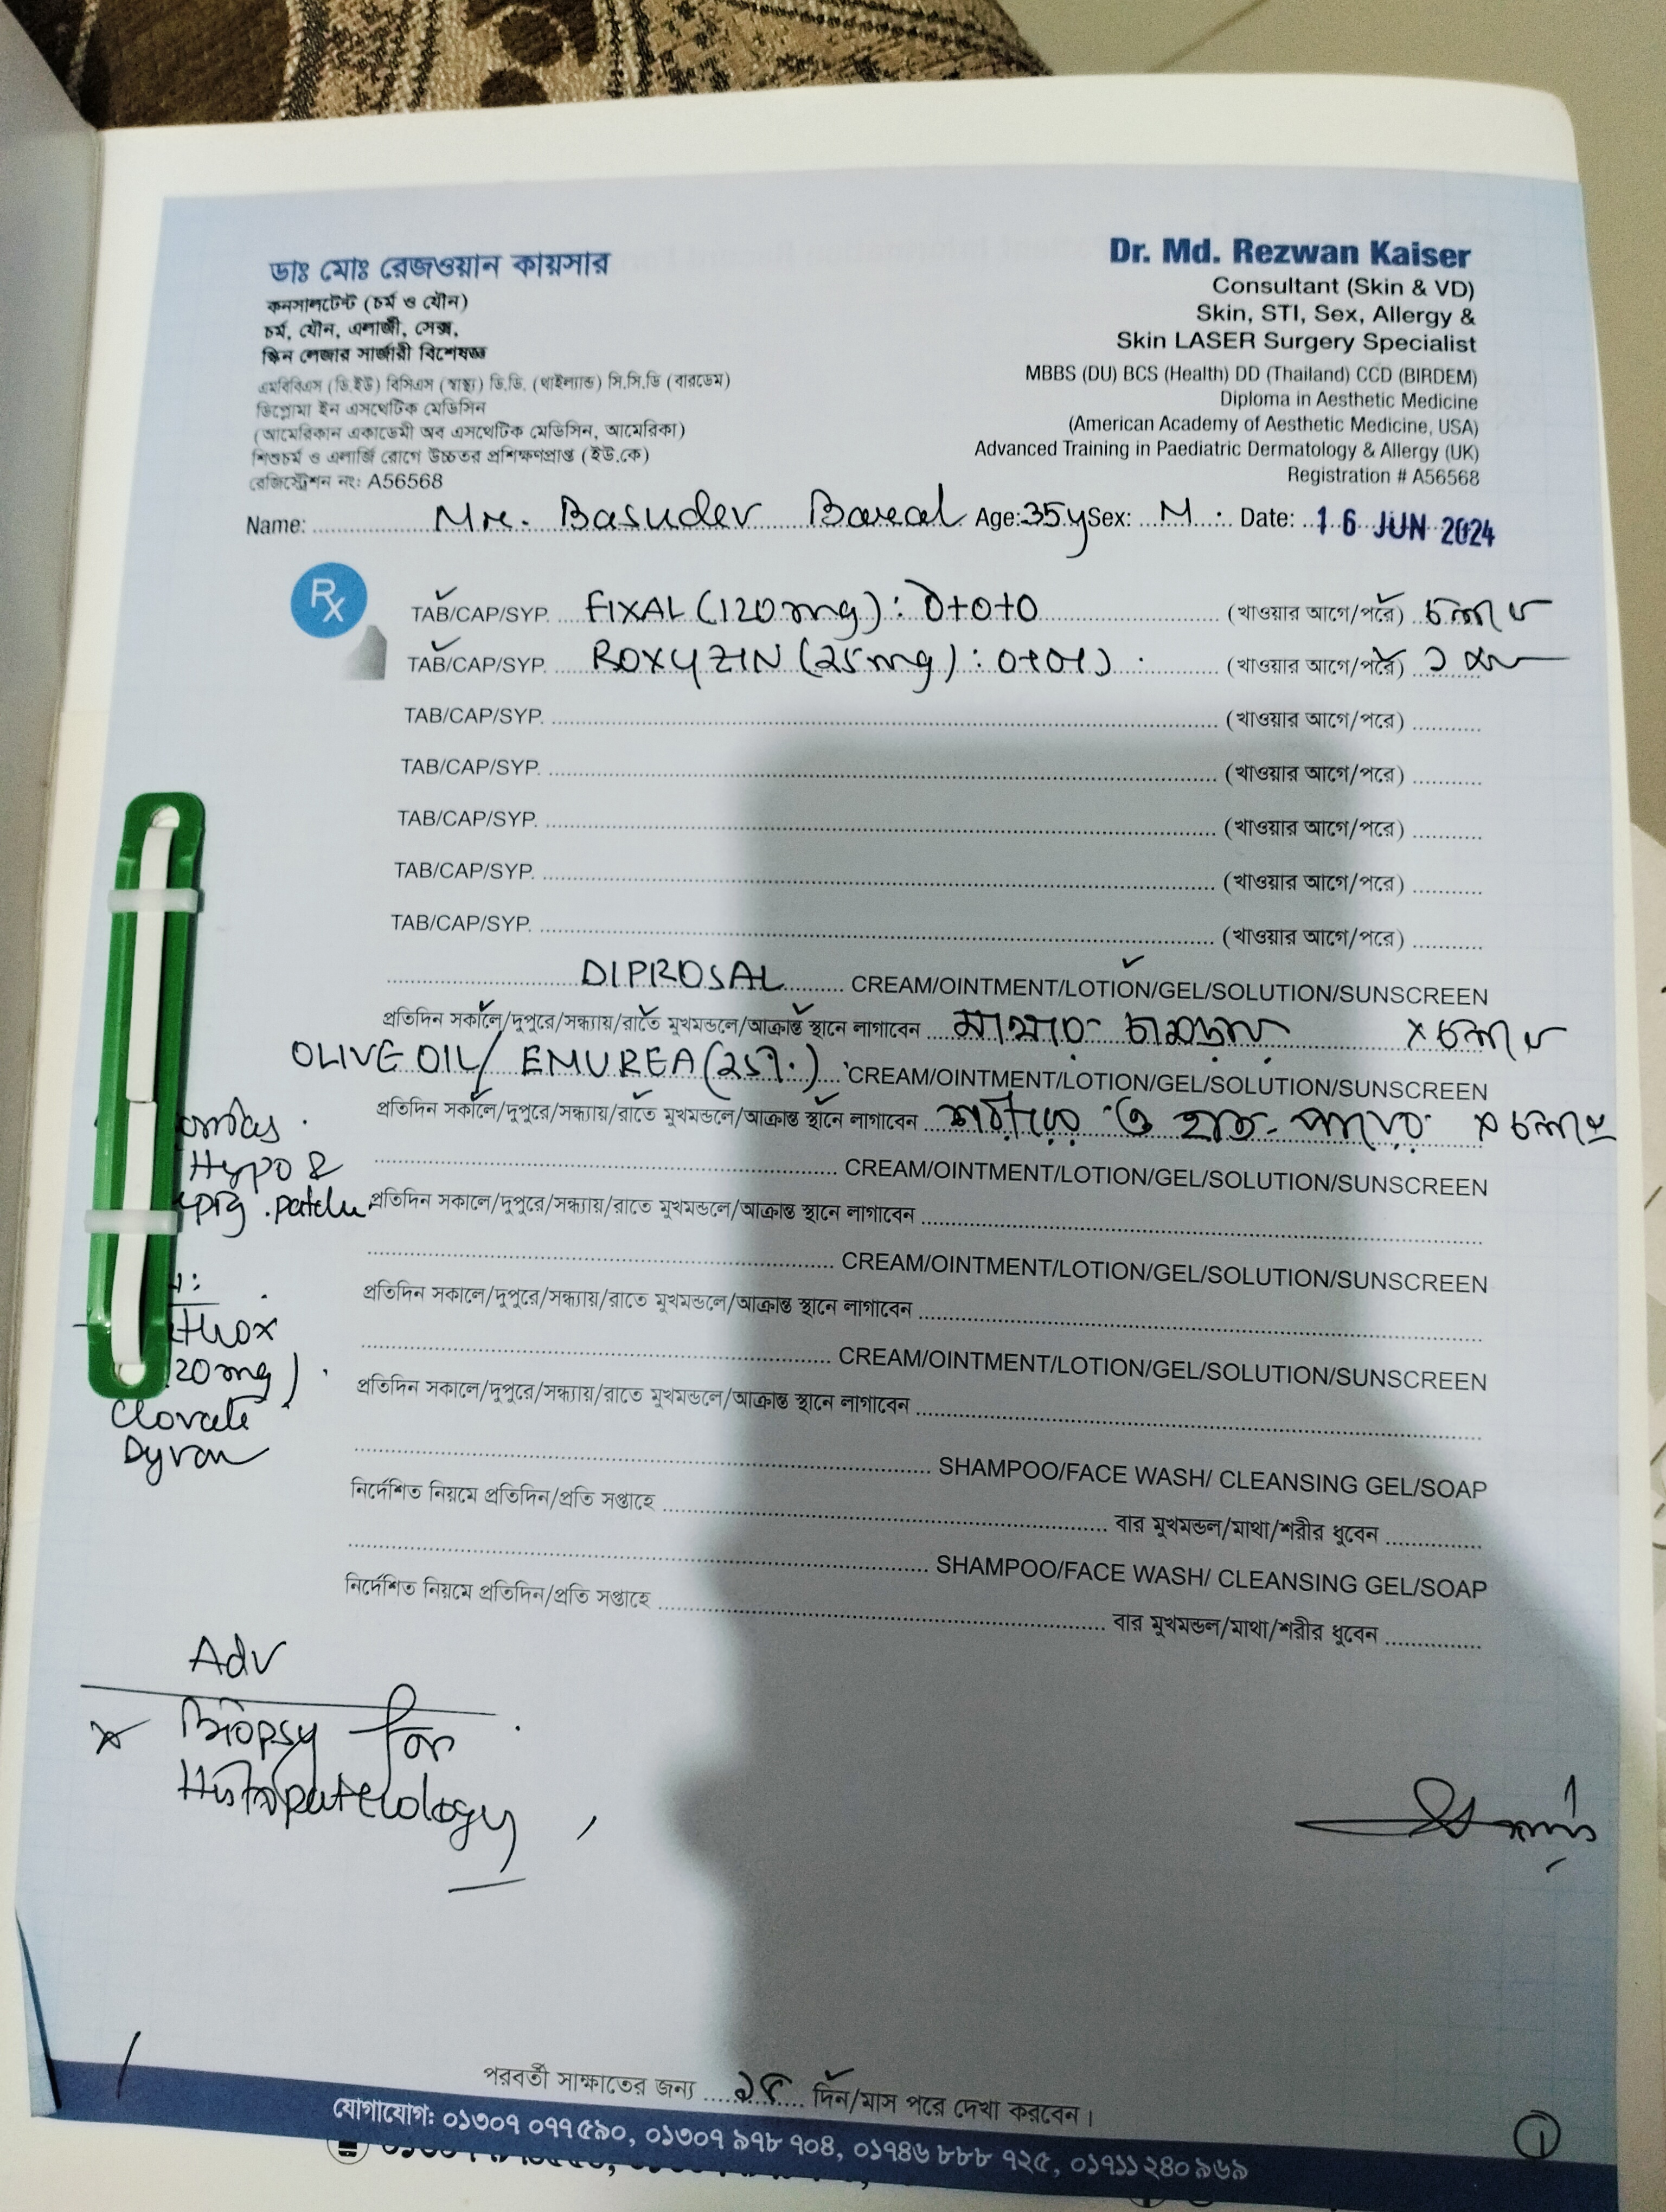 ডাঃ মোঃ রেজওয়ান কায়সার
কনসালটেন্ট (চর্ম ও যৌন)
চর্ম, যৌন, এলার্জী, সেক্স,
স্কিন লেজার সার্জারী বিশেষজ্ঞ
এমবিবিএস (ডি.ইউ) বিসিএস (স্বাস্থ্য) ডি.ডি. (থাইল্যান্ড) সি.সি.ডি (বারডেম)
ডিপ্লোমা ইন এসথেটিক মেডিসিন
(আমেরিকান একাডেমী অব এসথেটিক মেডিসিন, আমেরিকা)
শিশুচর্ম ও এলার্জি রোগে উচ্চতর প্রশিক্ষণপ্রাপ্ত (ইউ.কে)
রেজিস্ট্রেশন নং: A56568
Dr. Md. Rezwan Kaiser
Consultant (Skin & VD)
Skin, STI, Sex, Allergy &
Skin LASER Surgery Specialist
MBBS (DU) BCS (Health) DD (Thailand) CCD (BIRDEM)
Diploma in Aesthetic Medicine
(American Academy of Aesthetic Medicine, USA)
Advanced Training in Paediatric Dermatology & Allergy (UK)
Registration # A56568
Name: Mr. Basudev Age: 35y Sex: M. Date: 16 JUN 2024
Rx
TAB/CAP/SYP. FIXAL (120mg): 0+0+0 (খাওয়ার আগে/পরে) চলবে
TAB/CAP/SYP. ROXYZIN (25mg): 0+0+১ (খাওয়ার আগে/পরে) ১
TAB/CAP/SYP. (খাওয়ার আগে/পরে)
TAB/CAP/SYP. (খাওয়ার আগে/পরে)
TAB/CAP/SYP. (খাওয়ার আগে/পরে)
TAB/CAP/SYP. (খাওয়ার আগে/পরে)
TAB/CAP/SYP. (খাওয়ার আগে/পরে)
DIPROSAL CREAM/OINTMENT/LOTION/GEL/SOLUTION/SUNSCREEN
প্রতিদিন সকালে/দুপুরে/সন্ধ্যায়/রাতে মুখমন্ডলে/আক্রান্ত স্থানে লাগাবেন মাথার চামড়ায় × চলবে
OLIVE OIL/ EMUREA (25%) CREAM/OINTMENT/LOTION/GEL/SOLUTION/SUNSCREEN
প্রতিদিন সকালে/দুপুরে/সন্ধ্যায়/রাতে মুখমন্ডলে/আক্রান্ত স্থানে লাগাবেন শরীরে ও হাত-পায়ে × চলবে
Hypo &
CREAM/OINTMENT/LOTION/GEL/SOLUTION/SUNSCREEN
প্রতিদিন সকালে/দুপুরে/সন্ধ্যায়/রাতে মুখমন্ডলে/আক্রান্ত স্থানে লাগাবেন
CREAM/OINTMENT/LOTION/GEL/SOLUTION/SUNSCREEN
প্রতিদিন সকালে/দুপুরে/সন্ধ্যায়/রাতে মুখমন্ডলে/আক্রান্ত স্থানে লাগাবেন
CREAM/OINTMENT/LOTION/GEL/SOLUTION/SUNSCREEN
20mg)
প্রতিদিন সকালে/দুপুরে/সন্ধ্যায়/রাতে মুখমন্ডলে/আক্রান্ত স্থানে লাগাবেন
Clovate
Dyvon
SHAMPOO/FACE WASH/ CLEANSING GEL/SOAP
নির্দেশিত নিয়মে প্রতিদিন/প্রতি সপ্তাহে বার মুখমন্ডল/মাথা/শরীর ধুবেন
SHAMPOO/FACE WASH/ CLEANSING GEL/SOAP
নির্দেশিত নিয়মে প্রতিদিন/প্রতি সপ্তাহে বার মুখমন্ডল/মাথা/শরীর ধুবেন
Adv
Biopsy for
Histopathology
পরবর্তী সাক্ষাতের জন্য ১৫ দিন/মাস পরে দেখা করবেন।
যোগাযোগ: ০১৩০৭ ০৭৭৫৯০, ০১৩০৭ ৯৭৮ ৭০৪, ০১৭৪৬ ৮৮৮ ৭২৫, ০১৭১১ ২৪০ ৯৬৯
1